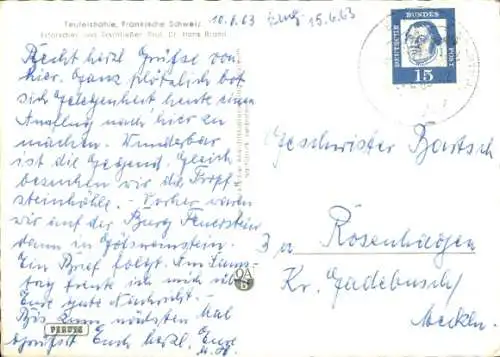 Teufelshöhle, Fränkische Schweiz
Erforscher und Erschließer Prof. Dr. Hans Brand
10.6.63
15.6.63
DEUTSCHE BUNDESPOST
15
Recht herzl. Grüße von
hier. Ganz plötzlich bot
sich Gelegenheit heute einen
Ausflug nach hier zu
machen. Wunderbar
ist die Gegend. Gleich
besuchen wir die Tropf-
steinhöhle. - Vorher waren
wir auf der Burg Feuerstein
dann in Gößweinstein.
Ein Brief folgt. Am Sams-
tag freute ich mich üb.
Eure gute Nachricht. -
Bis zum nächsten Mal
grüßt Euch herzl. Eure
PERUTZ
Geschwister Bartsch
Rosenhagen
Kr. Gadebusch
Mecklen.